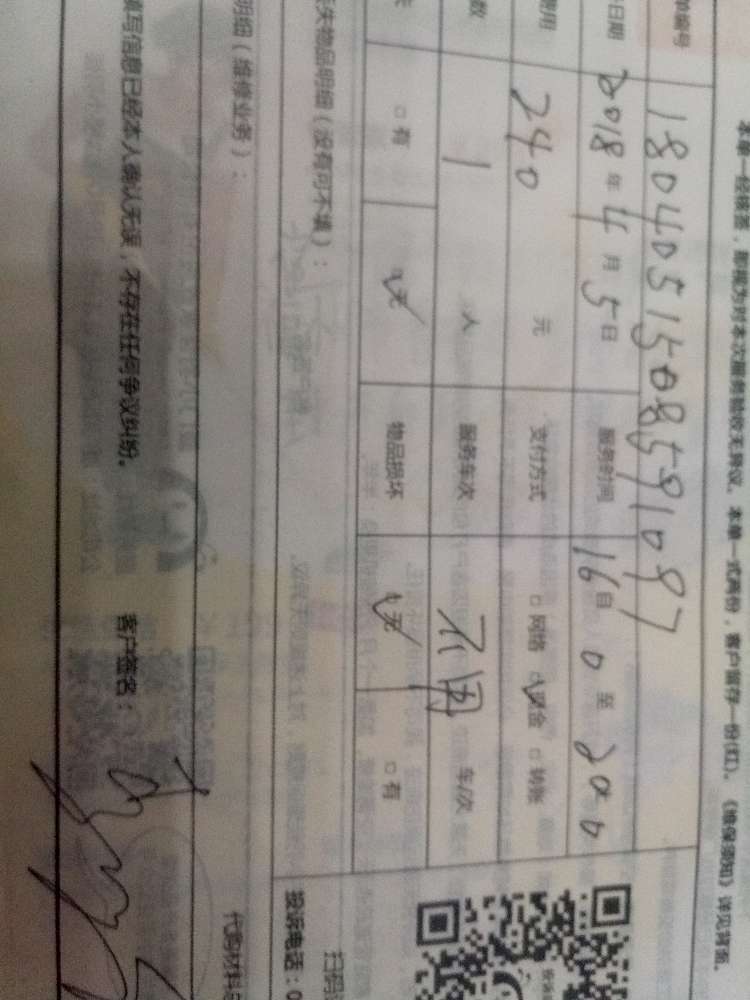 本单一经接答，即视为对本次服务验收无异议。本单一式两份，客户留存一份(红)。《维保须知》详见背面。
编号 1804051508591087
日期 2018年4月5日 服务时间 16 0 至 20 0
费用 240 元 支付方式 □网络 现金 □转账
数 1 人 服务车次 不用 车/次
□有 无 物品损坏 无 □有
失物品明细（没有可不填）：
明细（维修业务）：
填写信息已经本人确认无误，不存在任何争议纠纷。 客户签名：
扫码
投诉电话：0
代购材料